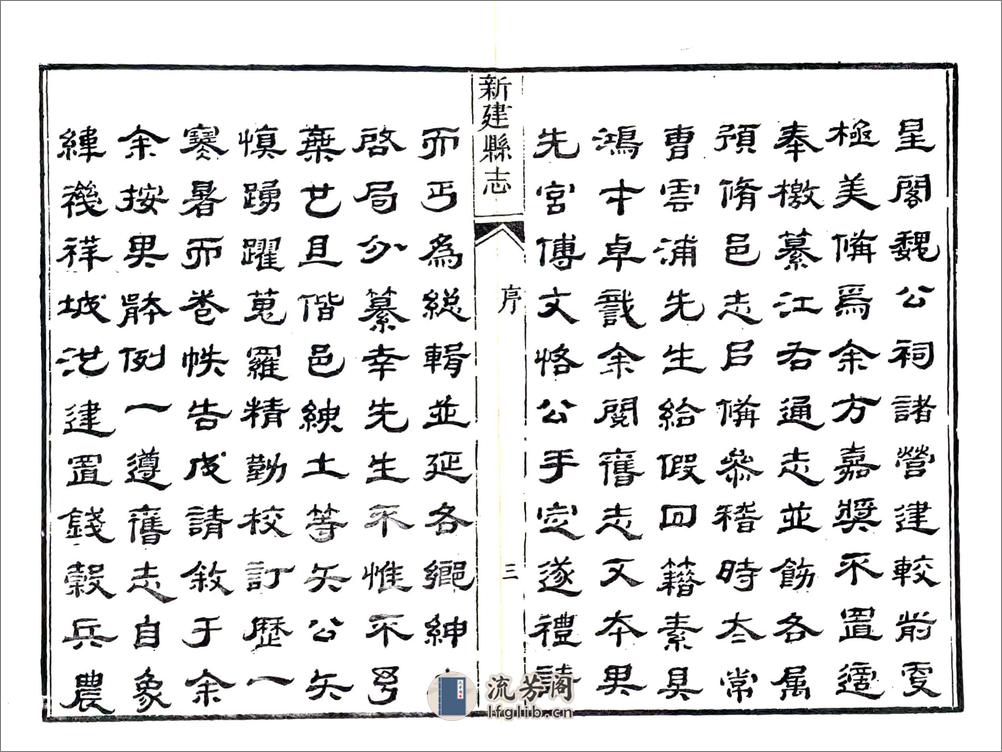 星閣魏公祠諸營建較前更
極美備焉余方嘉獎不置適
奉檄纂江右通志並飭各屬
預脩邑志㠯備叅稽時太常
曹雲浦先生給假回籍素具
鴻才卓識余閱舊志又本其
先宮傅文恪公手定遂禮請
新建縣志
序
三
而丐為総輯並延各鄉紳
啓局分纂幸先生不惟不予
棄也且偕邑紳士等矢公矢
慎踴躍蒐羅精勤校訂歷一
寒暑而卷帙告成請敘于余
余按其體例一遵舊志自象
緯禨祥城池建置錢穀兵農
流芳阁
lfglib.cn